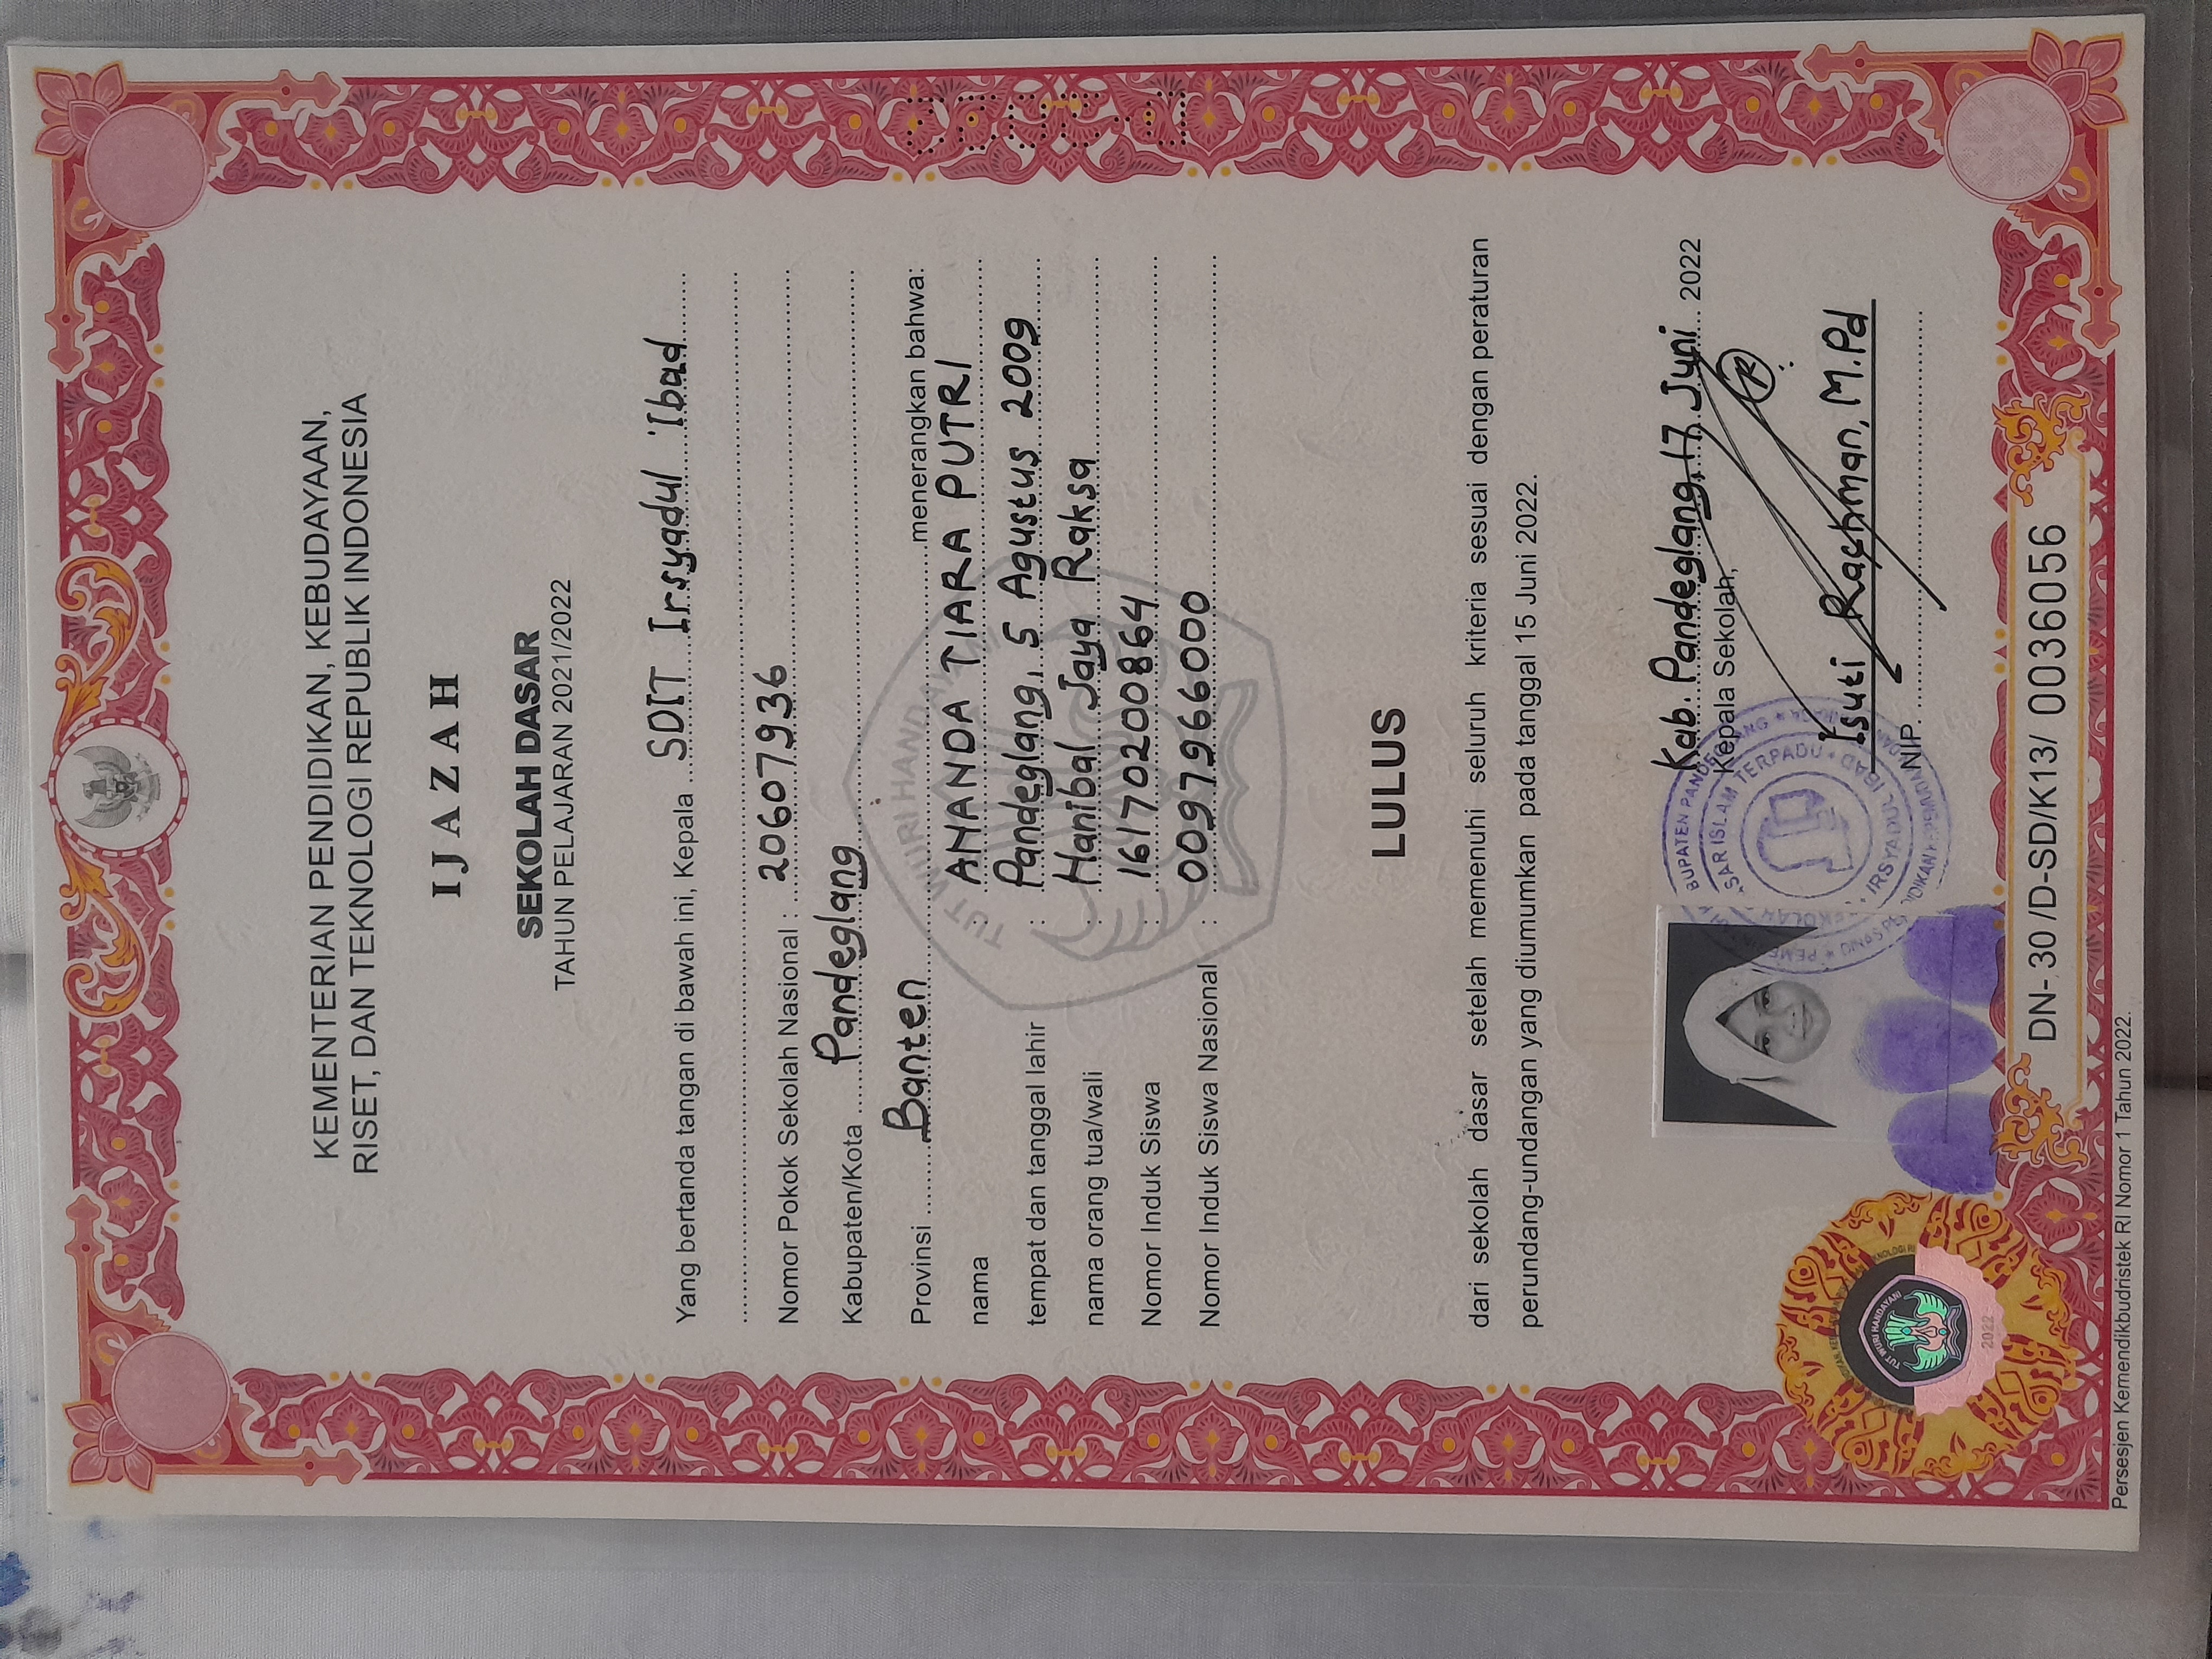 KEMENTERIAN PENDIDIKAN, KEBUDAYAAN,
RISET, DAN TEKNOLOGI REPUBLIK INDONESIA
IJAZAH
SEKOLAH DASAR
TAHUN PELAJARAN 2021/2022
Yang bertanda tangan di bawah ini, Kepala SDIT Irsyadul 'Ibad
Nomor Pokok Sekolah Nasional : 20607936
Kabupaten/Kota Pandeglang
Provinsi Banten menerangkan bahwa:
nama : ANANDA TIARA PUTRI
tempat dan tanggal lahir : Pandeglang, 5 Agustus 2009
nama orang tua/wali : Hanibal Jaya Raksa
Nomor Induk Siswa : 16170200864
Nomor Induk Siswa Nasional : 0097966000
TUT WURI HANDAYANI
LULUS
dari sekolah dasar setelah memenuhi seluruh kriteria sesuai dengan peraturan
perundang-undangan yang diumumkan pada tanggal 15 Juni 2022.
Kab. Pandeglang, 17 Juni 2022
Kepala Sekolah,
Isuti Rachman, M.Pd
NIP.
BUPATEN PANDEGLANG
ASAR ISLAM TERPADU
IRSYADUL IBAD
TUT WURI HANDAYANI
2022
DN- 30 /D-SD/K13/ 0036056
Persesjen Kemendikbudristek RI Nomor 1 Tahun 2022.